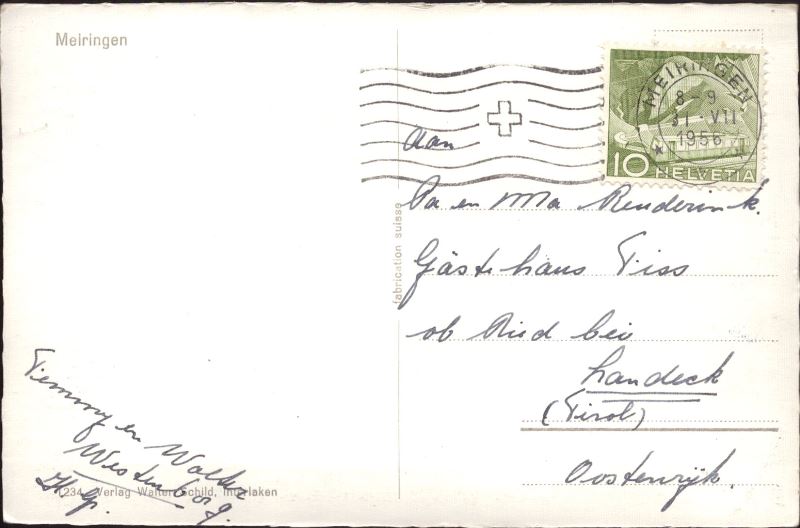 Meiringen
MEIRINGEN
8-9
31·VII
1956
10 HELVETIA
aan
Pa en Ma Renderink.
Gästehaus Fiss
ob Ried bei
Landeck
(Tirol)
Oostenrijk.
fabrication suisse
Tiemmy en Walter
Westenborg.
1234 Verlag Walter Schild, Interlaken